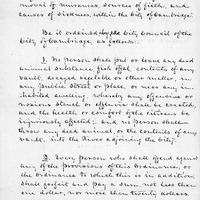 moval of nuisances, sources of filth, and
causes of sickness, within the City of Cambridge.
Be it ordained by the City Council of the
City of Cambridge, as follows:
1. No person shall put or leave any dead
animal substance, fish offal, contents of any
vault, decayed vegetable or other matter, in
any public Street or Place, or near any in-
habited dwelling, whereby any offensive or
noxious smell or effluvia shall be created,
and the health or comfort of the citizens be
injuriously affected; and no person shall
throw any dead animal, or the contents of any
vault, into the River adjoining the City.
2. Every person who shall offend against
any of the provisions of this ordinance, or
the ordinance to which this is in addition,
shall forfeit and pay a sum not less than
one dollar, nor more than twenty dollars